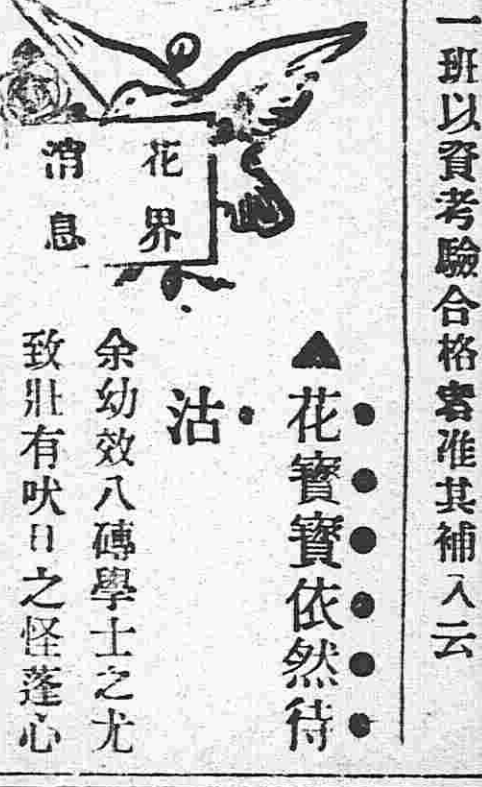 一班以資考驗合格者准其補入云
花界
消息
▲花寶寶依然待
沽
余幼效八磚學士之尤
致壯有吠日之怪蓬心